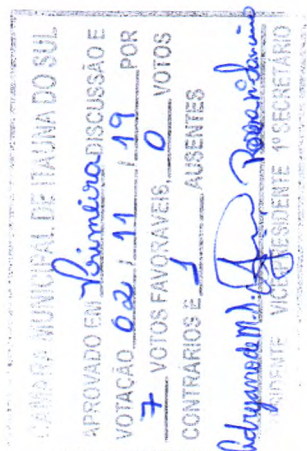 CÂMARA MUNICIPAL DE ITAÚNA DO SUL
APROVADO EM Primeira DISCUSSÃO E
VOTAÇÃO 02 / 11 / 19 POR
7 VOTOS FAVORÁVEIS, 0 VOTOS
CONTRÁRIOS E 1 AUSENTES
Adryano de M.S.
PRESIDENTE VICE-PRESIDENTE 1º SECRETÁRIO